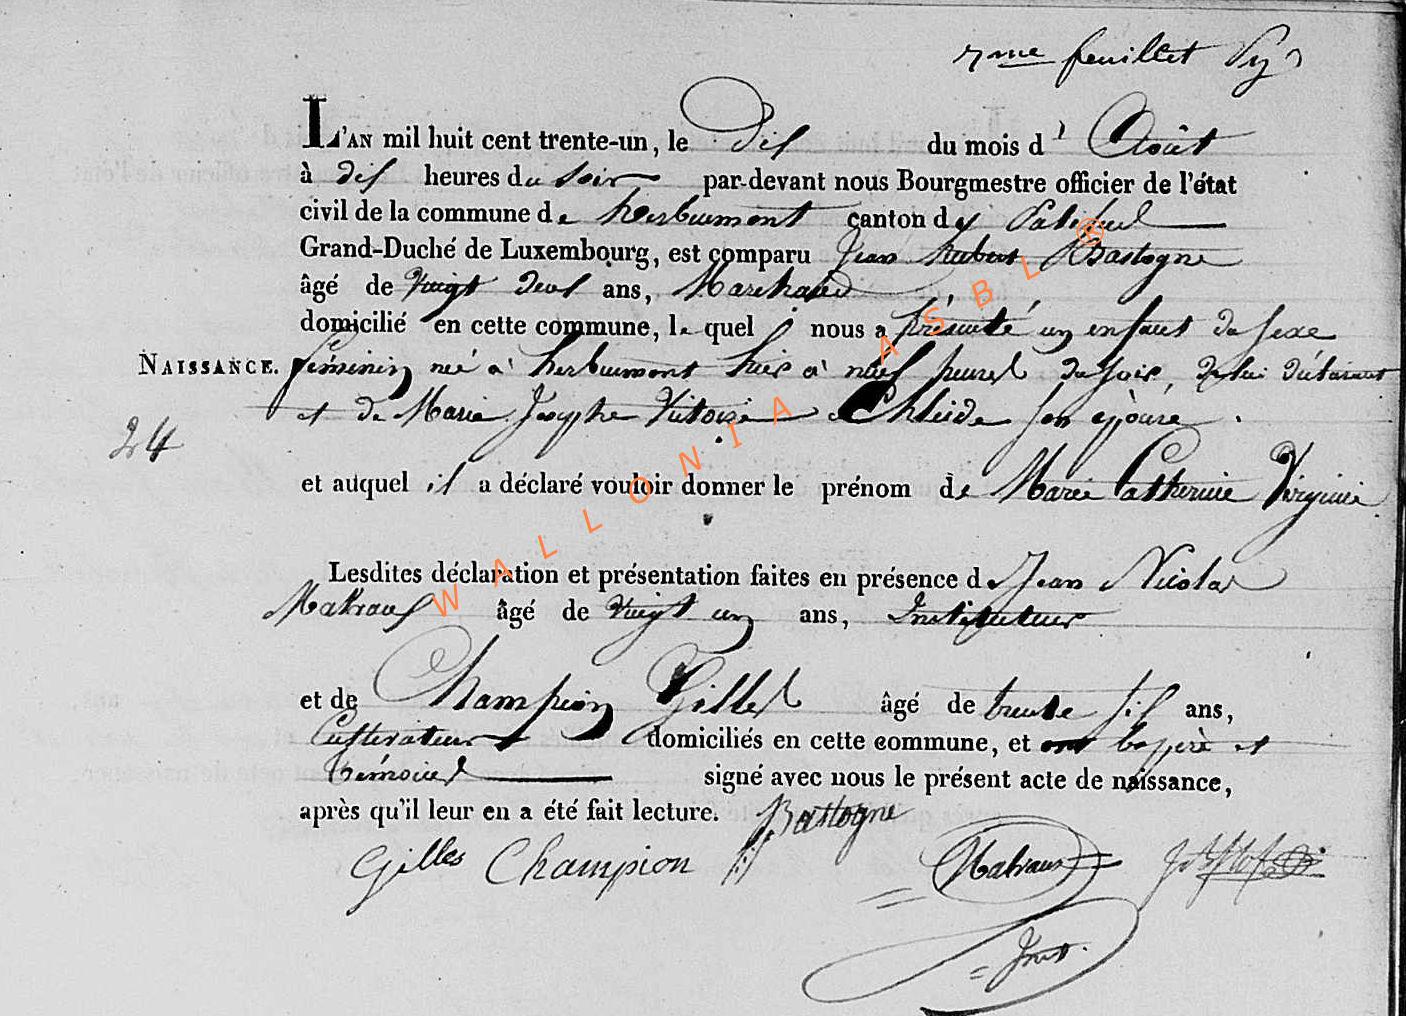 7me feuillet
L'AN mil huit cent trente-un, le dix du mois d' Août
à dix heures du soir par-devant nous Bourgmestre officier de l'état
civil de la commune de herbeumont canton de Paliseul
Grand-Duché de Luxembourg, est comparu Jean hubert Bastogne
âgé de vingt deux ans, Marchand
domicilié en cette commune, lequel nous a présenté un enfant du sexe
NAISSANCE. féminin né à herbeumont hier à neuf heures du soir, de lui déclarant
24 et de Marie Josephe Victoire son épouse
et auquel il a déclaré vouloir donner le prénom de Marie Catherine Virginie
Lesdites déclaration et présentation faites en présence de Jean Nicolas
Makraux âgé de vingt un ans, Instituteur
et de Champion Gilles âgé de trente six ans,
Cultivateur domiciliés en cette commune, et ont le père et
témoins signé avec nous le présent acte de naissance,
après qu'il leur en a été fait lecture. Bastogne
Gilles Champion Makraux
Inst.
WALLONIA ASBL ®